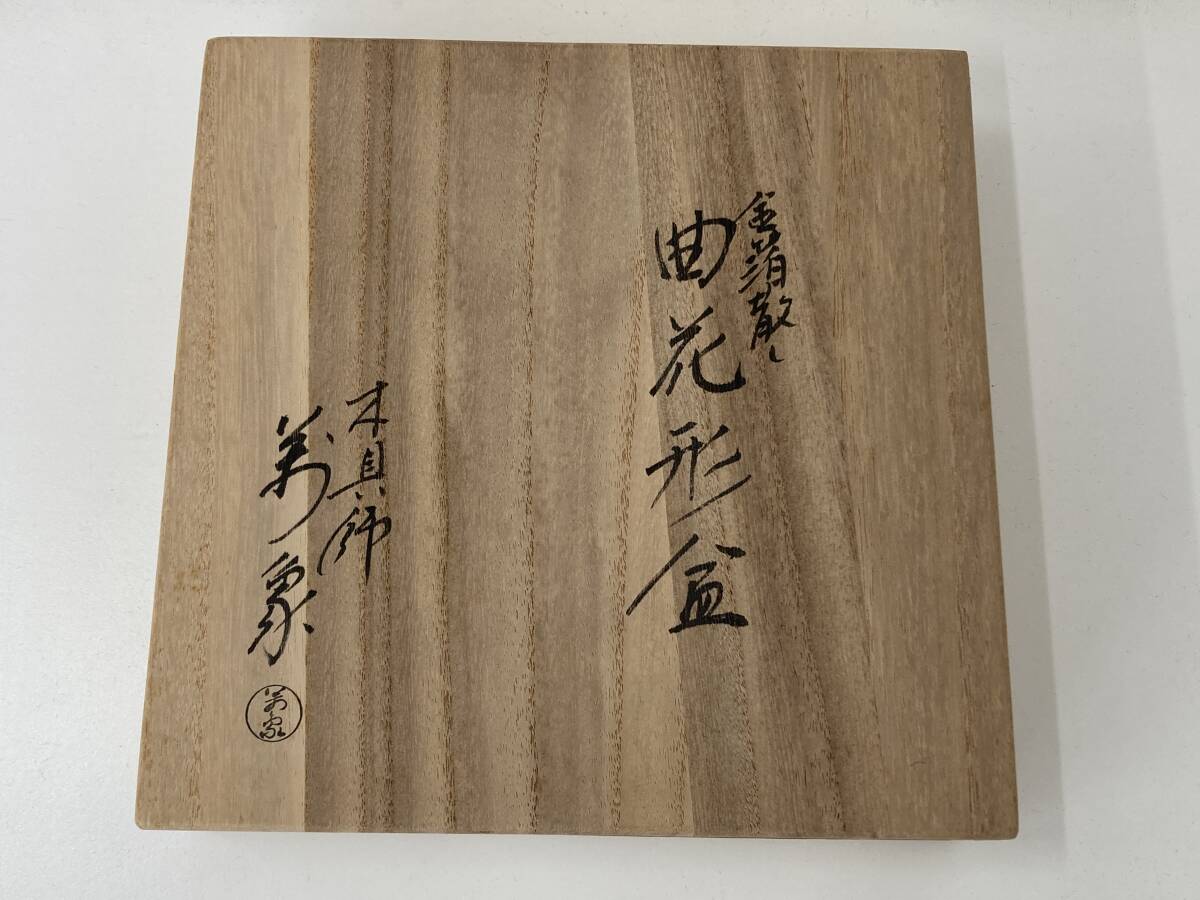 金箔散し
曲花形盆
木具師
萬象
萬象